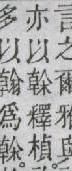 言之爾雅與
亦以榦釋楨
多以翰爲榦